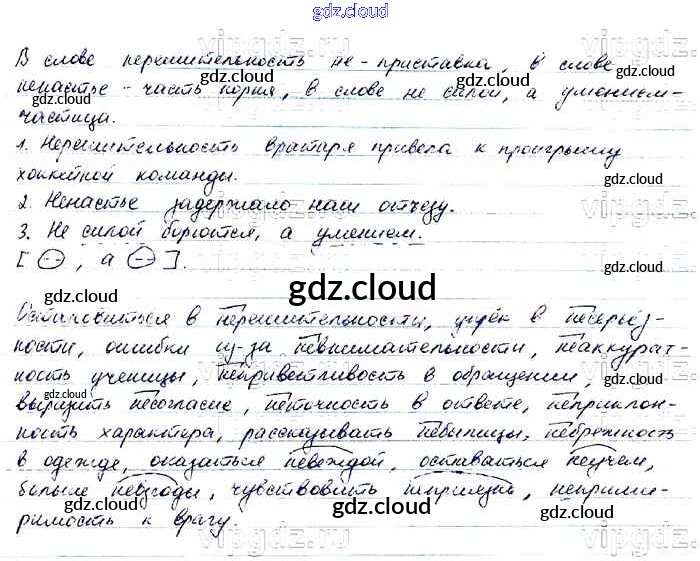 gdz.cloud
В слове нерешительность не - приставка, в слове
ненастье - часть корня, в слове не силой, а умением-
частица.
1. Нерешительность вратаря привела к проигрышу
хоккейной команды.
2. Ненастье задержало наш отъезд.
3. Не силой борются, а умением.
[ , а ].
gdz.cloud
Остановиться в нерешительности, упрёк в несерьёз-
ности, ошибки из-за невнимательности, неаккурат-
ность ученицы, неприветливость в обращении,
выразить несогласие, неточность в ответе, неприклон-
ность характера, рассказывать небылицы, небрежность
в одежде, оказаться невеждой, оставаться неучем,
больше невзгоды, чувствовать неприязнь, неприми-
римость к врагу.